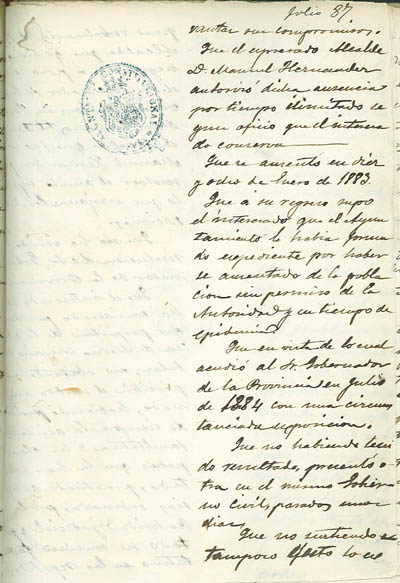 Julio 87
sus compromisos.
Que el expresado Alcalde
D. Manuel Hernandez
autorizó dicha ausencia
por tiempo ilimitado se
gun oficio que el interesa
do conserva
Que se ausentó en diez
y ocho de Enero de 1883.
Que a su regreso supo
el interesado que el Ayun
tamiento le habia forma
do expediente por haber
se ausentado de la pobla
cion sin permiso de la
Autoridad y en tiempo de
epidemia.
Que en vista de lo cual
acudió al Sr. Gobernador
de la Provincia en Julio
de 1884 con una circuns
tanciada exposicion.
Que no habiendo teni
do resultado, presentó o
tra en el mismo Gobier
no civil, pasados unos
dias,
Que no surtiendo
tampoco efecto lo